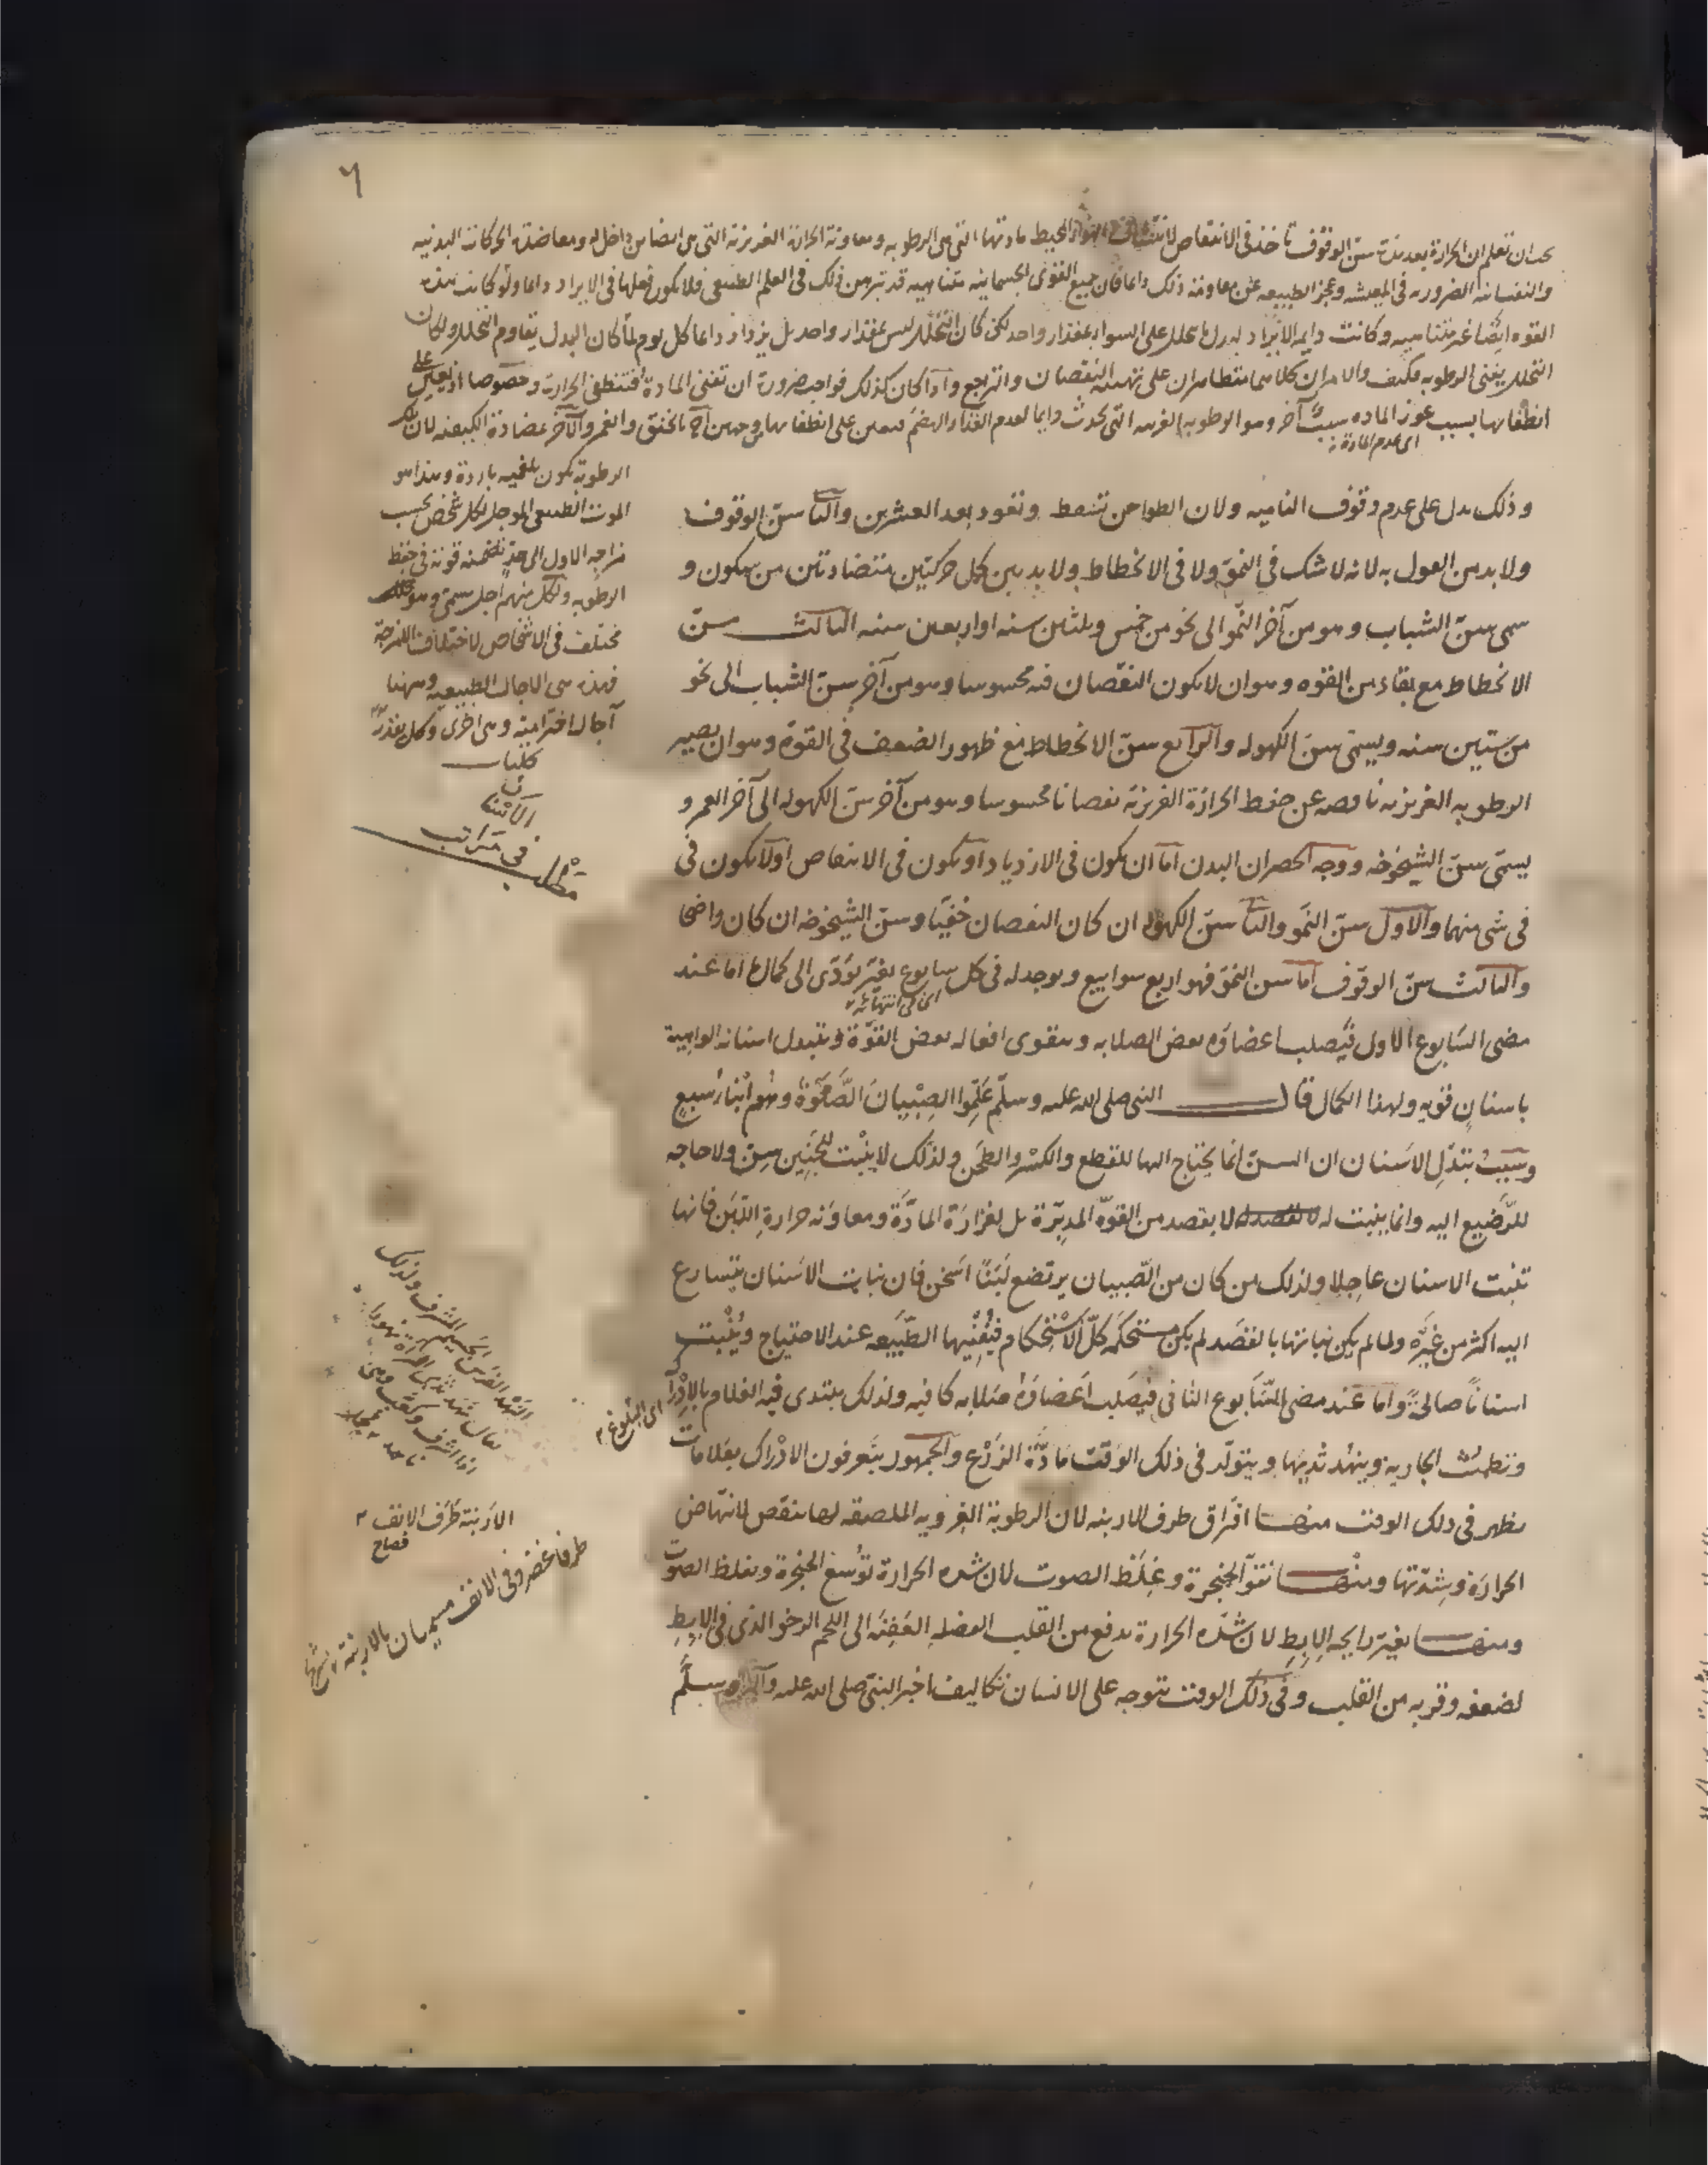 ٦
يجب ان تعلم ان الحرارة بعد مدة سن الوقوف تأخذ فى الانتقاص لانتشاف الهواء المحيط مادتها التى هى الرطوبه ومعاونة الحرارة الغريزية التى هى ايضا من داخل له ومعاضدة الحركات البدنيه
والنفسانيه الضروريه فى المعيشه وعجز الطبيعه عن مقاومة ذلك دايما فان جميع القوى الجسمانيه متناهيه قد تبين ذلك فى العلم الطبيعى فلا يكون فعلها فى الايراد دايما ولو كانت هذه
القوه ايضا غير متناهيه وكانت دايم الايراد لبدل ما يتحلل على السواء بمقدار واحد لكن كان التحلل ليس بمقدار واحد بل يزداد دايما كل يوم لما كان البدل يقاوم التحلل ولكان
التحلل يفنى الرطوبه فكيف والامران كلاهما متظاهران على تهيئة النقصان والتراجع واذا كان كذلك فواجب ضرورة ان تفنى المادة فتنطفى الحرارة وخصوصا اذ يعين على
انطفائها بسبب عوز الماده سبب آخر وهو الرطوبه الغريبه التى تحدث دايما لعدم الغذاء الهضم فتعين على انطفائها من وجهين احدهما بالخنق والغمر والآخر بمضادة الكيفيه لان تلك
اى عدم المادة
الرطوبة تكون بلغميه باردة وهذا هو
الموت الطبيعى المؤجل لكل شخص بحسب
مزاجه الاول الى حد تضمنه قوته فى حفظ
الرطوبه ولكل منهم اجل مسمى وهو
مختلف فى الاشخاص لاختلاف الامزجة
فهذه هى الاجال الطبيعيه وههنا
آجال اخترامية وهى اخرى وكل بقدر
كليات
وذلك يدل على عدم وقوف الناميه ولان الطواحن تسقط وتعود بعد العشرين والثانى سن الوقوف
ولا بد من القول به لانه لا شك فى النمو ولا فى الانحطاط ولا بد بين كل حركتين متضادتين من سكون و
سمى سن الشباب وهو من آخر النمو الى نحو من خمس وثلثين سنه او اربعين سنه الثالث سن
الانحطاط مع بقاء من القوه وهو ان لا يكون النقصان فيه محسوسا وهو من آخر سن الشباب الى نحو
من ستين سنه ويسمى سن الكهوله والرابع سن الانحطاط مع ظهور الضعف فى القوة وهو ان يصير
الرطوبه الغريزيه ناقصه عن حفظ الحرارة الغريزية نقصانا محسوسا وهو من آخر سن الكهوله الى آخر العمر و
يسمى سن الشيخوخه ووجه الحصر ان البدن اما ان يكون فى الازدياد او يكون فى الانتقاص او لا يكون فى
فى شى منهما والاول سن النمو والثانى سن الكهوله ان كان النقصان خفيا وسن الشيخوخه ان كان واضحا
والثالث سن الوقوف اما سن النمو فهو اربع سوابيع ويوجد له فى كل سابوع تغير يؤدى الى كمال ما اما عند
اى فى انتهائه
مضى السابوع الاول فيصلب اعضاؤه بعض الصلابه ويتقوى افعاله بعض القوة ويتبدل اسنانه الواهية
باسنان قويه ولهذا الكمال قال النبى صلى الله عليه وسلم علموا الصبيان الصلوة وهم ابناء سبع
وسبب تبدل الاسنان ان السن انما يحتاج اليها للقطع والكسر والطحن ولذلك لا ينبت للجنين سن ولا حاجه
للرضيع اليه وانما ينبت له لا بقصد من القوة المدبرة بل لغزارة المادة ومعاونه حرارة اللبن فانها
تنبت الاسنان عاجلا ولذلك من كان من الصبيان يرتضع لبنا اسخن فان نبات الاسنان يتسارع
اليه اكثر من غيره ولما لم يكن نباتها بالقصد لم يكن مستحكمه كل الاستحكام فيفنيها الطبيعه عند الاحتياج وينبت
اسنانا صالحة واما عند مضى السابوع الثانى فيصلب اعضاؤه صلابه كافيه ولذلك يبتدى فيه الغلام بالادراك
اى البلوغ
وتطمث الجاريه وينهد ثديها ويتولد فى ذلك الوقت مادة الزرع والجمهور يتعرفون الادراك بعلامات
يظهر فى ذلك الوقت منها افتراق طرف الارنبه لان الرطوبة الغرويه الملصقه لها تنقص لانتهاض
الحرارة وشدتها ومنها نتو الحنجرة وغلظ الصوت لان شده الحرارة توسع الحنجرة وتغلظ الصوت
ومنها تغير رايحه الابط لان شده الحرارة تدفع من القلب الفضله العفنه الى اللحم الرخو الذى فى الابط
لضعفه وقربه من القلب وفى ذلك الوقت تتوجه على الانسان تكاليف اخبر النبى صلى الله عليه وآله وسلم
مطلب
فى مراتب
الاسنان
الارنبة طرف الانف
صحاح
طرفا غضروفى الانف يسميان بالارنبة